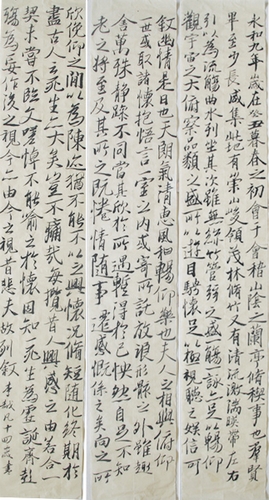 永和九年歲在癸丑暮春之初會于會稽山陰之蘭亭脩禊事也羣賢
畢至少長咸集此地有崇山峻領茂林脩竹又有清流激湍映帶左右
引以為流觴曲水列坐其次雖無絲竹管弦之盛一觴一詠亦足以暢仰
觀宇宙之大俯察品類之盛所以遊目騁懷足以極視聽之娛信可
叙幽情是日也天朗氣清惠風和暢仰樂也夫人之相與俯仰
一世或取諸懷抱悟言一室之內或寄所託放浪形骸之外雖趣
舍萬殊靜躁不同當其欣於所遇暫得於己快然自足不知
老之將至及其所之既惓情隨事遷感慨係之矣向之所
欣俛仰之間以為陳迹猶不能不以之興懷況脩短隨化終期於
盡古人云死生亦大矣豈不痛哉每攬昔人興感之由若合一
契未嘗不臨文嗟悼不能喻之於懷固知一死生為虛誕齊彭
殤為妄作後之視今亦由今之視昔悲夫故列叙